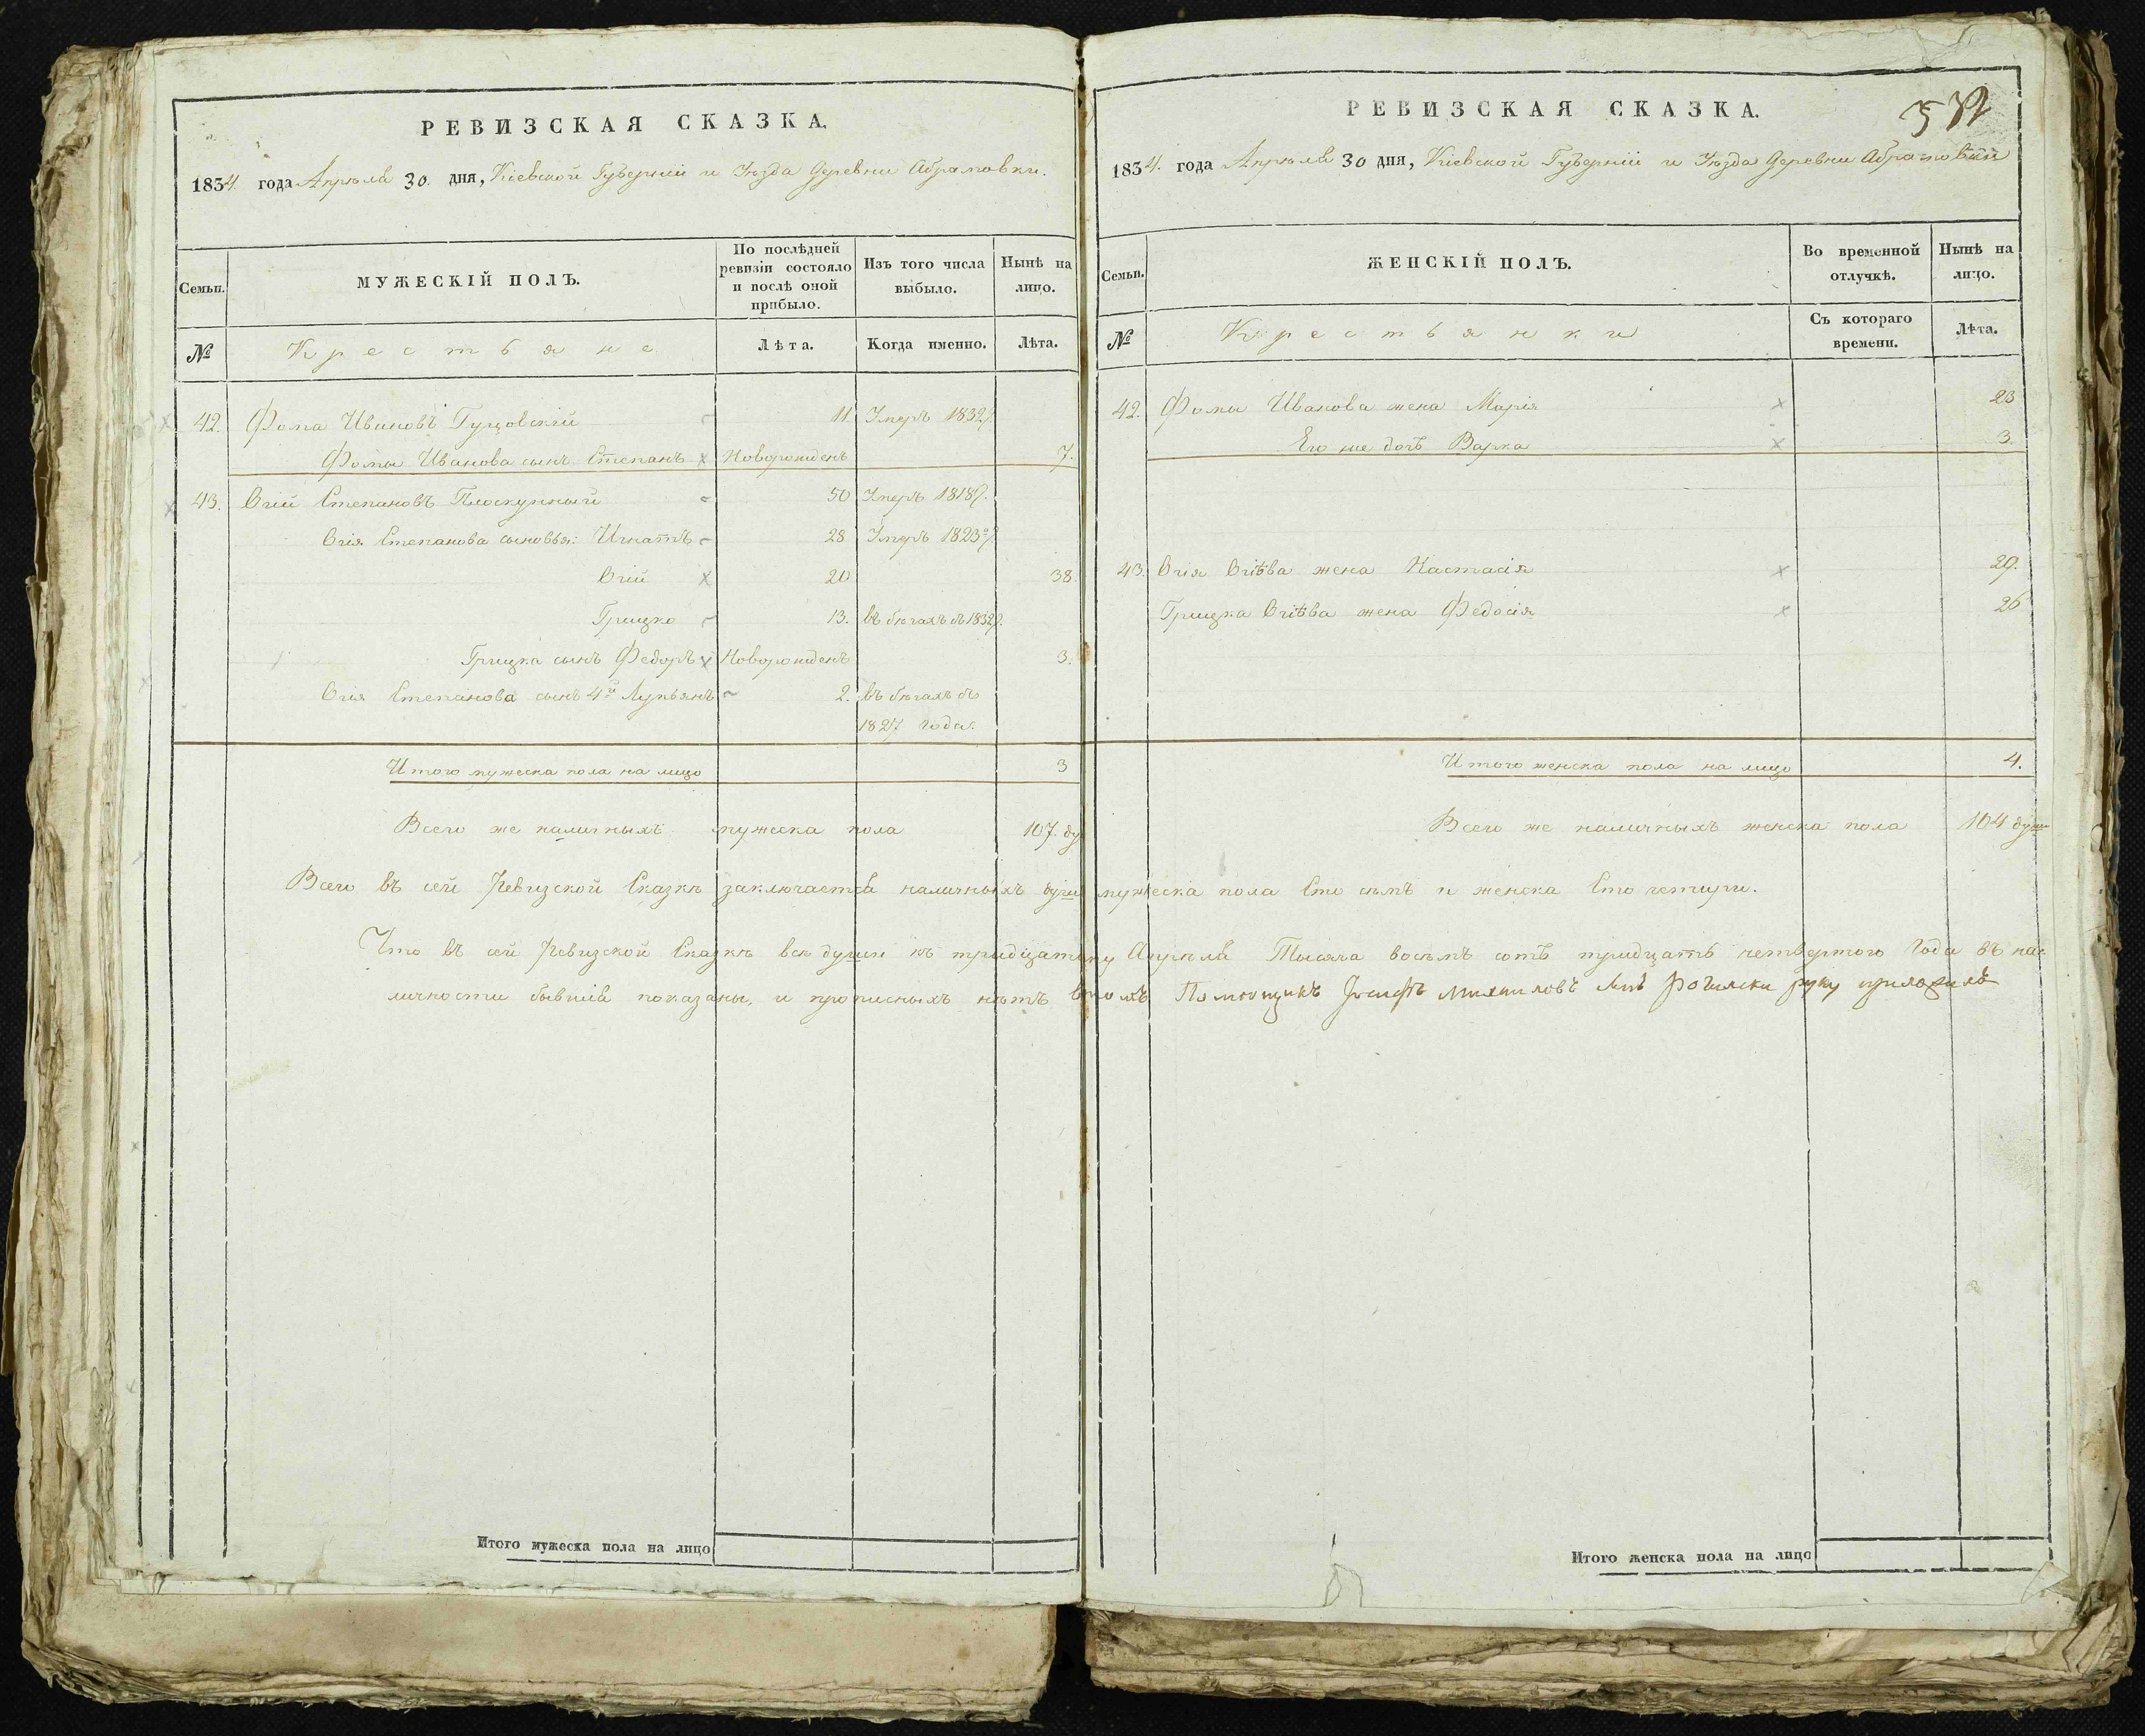 РЕВИЗСКАЯ СКАЗКА.
1834. года Апрѣля 30. дня, Кіевской Губерніи и Уѣзда Деревни Абрамовки.
Семьи.
МУЖЕСКІЙ ПОЛЪ.
По послѣдней ревизіи состояло и послѣ оной прибыло.
Изъ того числа выбыло.
Нынѣ на лицо.
№
Крестьяне
Лѣта.
Когда именно.
Лѣта.
42. Фома Ивановъ 11 Умеръ 1832
Фомы Иванова сынъ Степанъ Новорожденъ 7.
43. Степановъ 50 Умеръ 1818
Степанова сыновья: Игнатъ 28 Умеръ 1823
20 38.
Грицко 13. въ бѣгахъ съ 1832
Грицка сынъ Федоръ Новорожденъ 3.
Степанова сынъ 4й Лукьянъ 2. въ бѣгахъ съ
1827 года.
Итого мужеска пола на лицо 3
Всего же наличныхъ мужеска пола 107. ду
Итого мужеска пола на лицо
РЕВИЗСКАЯ СКАЗКА.
1834. года Апрѣля 30 дня, Кіевской Губерніи и Уѣзда Деревни Абрамовки
Семьи.
ЖЕНСКІЙ ПОЛЪ.
Во временной отлучкѣ.
Нынѣ на лицо.
№
Крестьянки
Съ котораго времени.
Лѣта.
42. Фомы Иванова жена Марія 23
Его же дочь Варка 3.
43. жена Настасія 29.
Грицка жена Федосія 26
Итого женска пола на лицо 4.
Всего же наличныхъ женска пола 104 душ
Всего въ сей Ревизской Сказкѣ заключается наличныхъ душъ мужеска пола Сто семь и женска Сто четыри.
Что въ сей Ревизской Сказкѣ всѣ души къ тридцатому Апрѣля Тысяча восемь сотъ тридцать четвертого Года въ на-
личности бывшія показаны, и прописныхъ нѣтъ въ томъ Помещикъ руку приложилъ
Итого женска пола на лицо